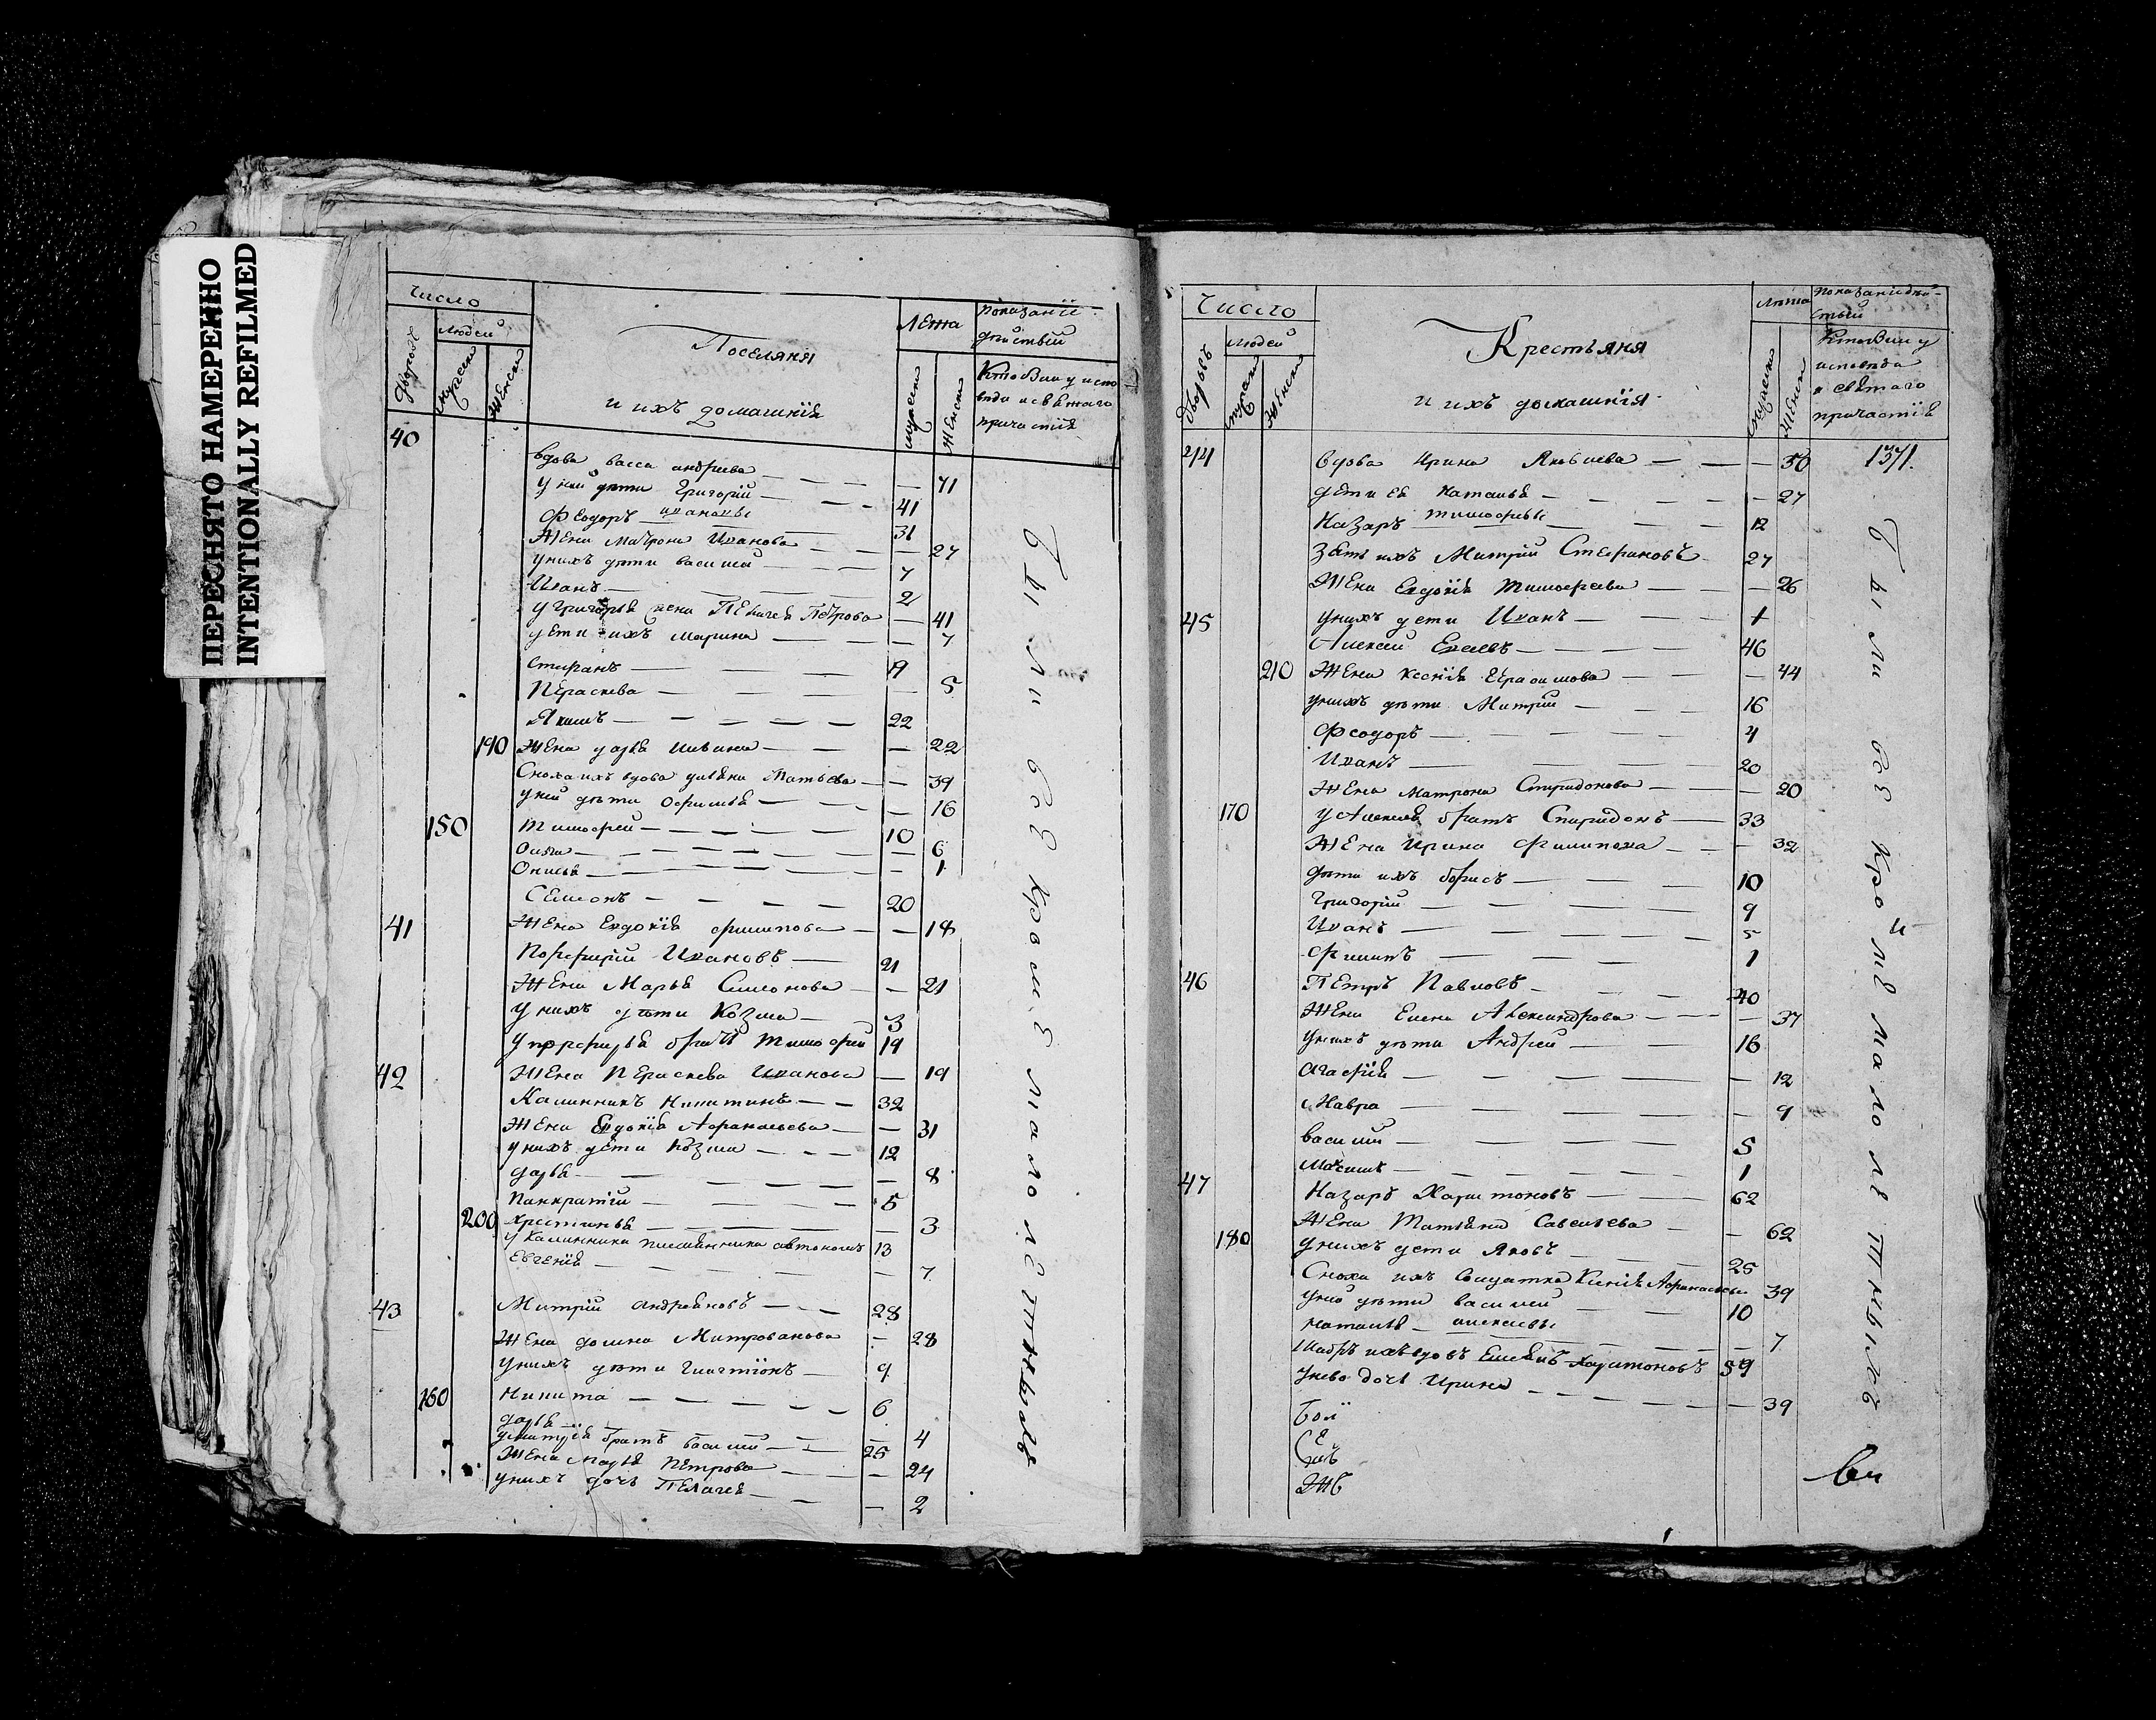 ПЕРЕСНЯТО НАМЕРЕННО
INTENTIONALLY REFILMED
Число
Людей
Дворовъ
мужеск
Женск
Поселяня
и ихъ домашнїя
Лета
мужеск
Женск
показанїе
действїй
Кто былъ у испо
веди и святаго
причастїя
40
вдова васса андреева — 71
у ней дѣти Григорїй — 41
Феодоръ ивановы 31
Жена Матрона Иванова — 27
у нихъ дѣти василїй — 7
Иванъ — 2
у Григорья жена Пелагея Петрова — 41
дети ихъ марина — 7
Стефанъ — 19
Пераскева — 5
Якимъ — 22
190 Жена дарья — 22
Сноха ихъ вдова улияна Матвева — 39
у ней дѣти Офимья — 16
150 Тимофей — 10
— 6
Онисья — 1
Семенъ — 20
41 Жена Евдокїя филипова — 18
Порфирїй Ивановъ — 21
Жена Марья Симонова — 21
у нихъ дѣти Козма — 3
у порфирья братъ Тимофей 19
42 Жена Пераскева Иванова — 19
Калинникъ Никитинъ — 32
Жена Евдокїя Афанасьева — 31
у нихъ дети Козма — 12
дарья — 8
Панкратїй — 5
200 христинья — 3
у Калинника племянника автономъ 13
Евгенїя — 7
43 Митрїй андреяновъ — 28
Жена домна Митрованова — 28
у нихъ дѣти Галактїонъ — 9
160 Никита — 6
дарья — 4
у митрїя братъ василїй — 25
Жена марья Петрова — 24
у нихъ дочь Пелагея — 2
Были все кроме малолетныхъ
Число
Людей
Дворовъ
мужеск
Женск
Крестьяня
и ихъ домашнїя
Лета
мужеск
Женск
показанїе дѣй-
ствїй
Кто былъ у
исповеди
и святаго
причастїя
44 вдова Ирина Яковлева — 50 1371.
дети ея Наталья — 27
Назаръ тимофевы — 12
Зять ихъ Митрїй Стефановъ 27
Жена Евдокїя Тимофеева — 26
45 у нихъ дети Иванъ — 1
Алексей Евсевъ — 46
210 Жена Ксенїя Герасимова — 44
у нихъ дѣти Митрїй — 16
Феодоръ — 4
Иванъ — 20
Жена Матрона Спиридонова — 20
170 у Алексея братъ Спиридонъ — 33
Жена Ирина Филипова — 32
дѣти ихъ борисъ — 10
Григорїй — 9
Иванъ — 5
Филипъ — 1
46 Петръ Павловъ — 40
Жена Елена Александрова — 37
у нихъ дѣти Андрей — 16
Агафїя — 12
Мавра — 9
василїй — 5
Максимъ — 1
47 Назаръ Харитоновъ — 62
Жена Татияна Савельева — 62
180 у нихъ дети Яковъ — 25
Сноха ихъ солдатка Ксенїя Афанасьева 39
у ней дѣти василей — 10
наталья алексеевы — 7
Шабръ ихъ вдовъ Емельянъ Харитоновъ 59
у него дочь Ирина — 39
Были все кромѣ малолетныхъ